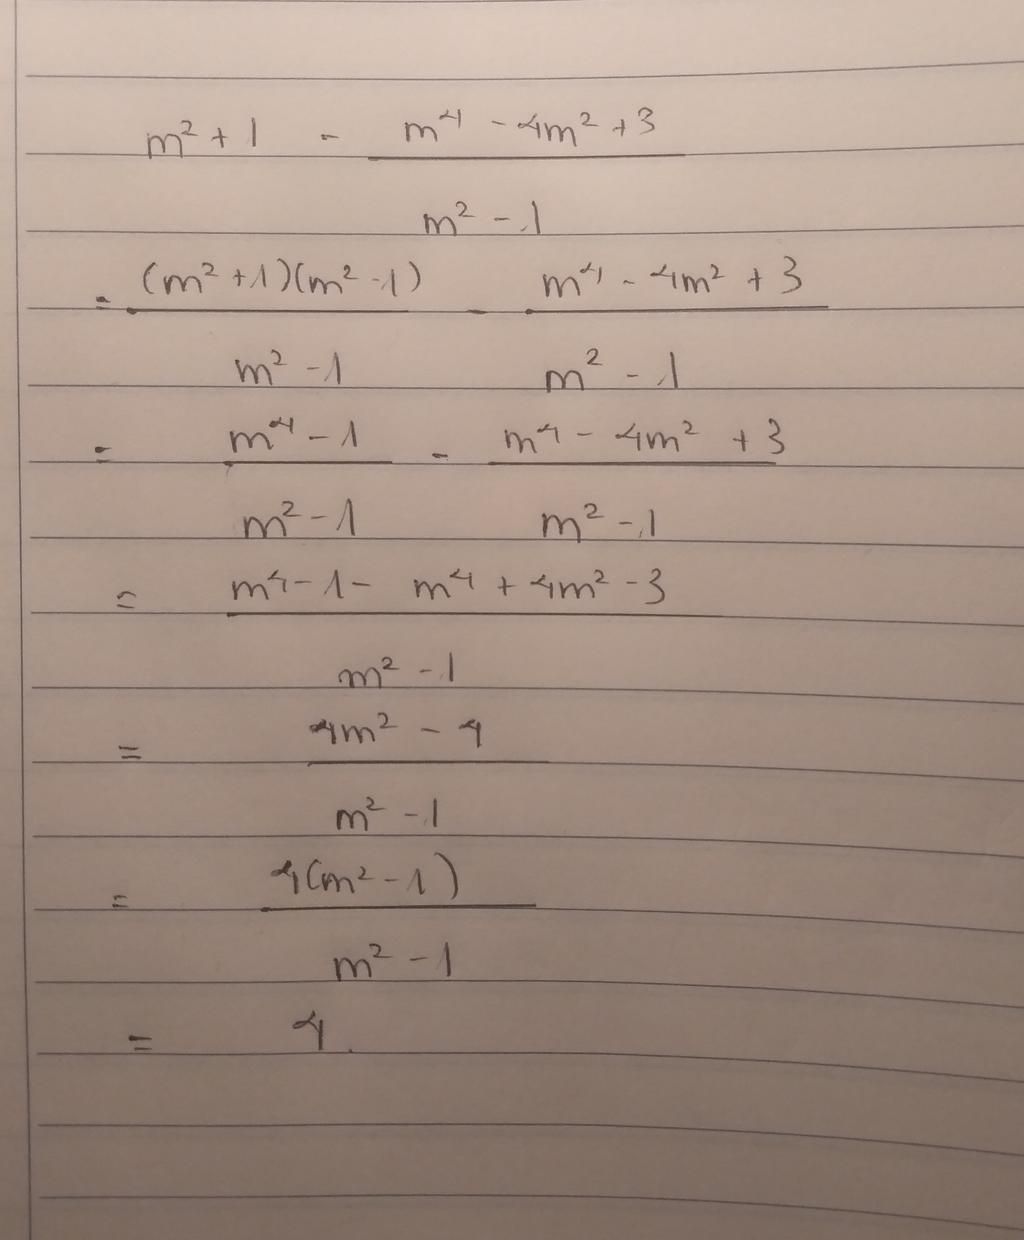 m² + 1 - (m⁴ - 4m² + 3)/(m² - 1)
= (m² + 1)(m² - 1)/(m² - 1) - (m⁴ - 4m² + 3)/(m² - 1)
= (m⁴ - 1)/(m² - 1) - (m⁴ - 4m² + 3)/(m² - 1)
= (m⁴ - 1 - m⁴ + 4m² - 3)/(m² - 1)
= (4m² - 4)/(m² - 1)
= 4(m² - 1)/(m² - 1)
= 4.